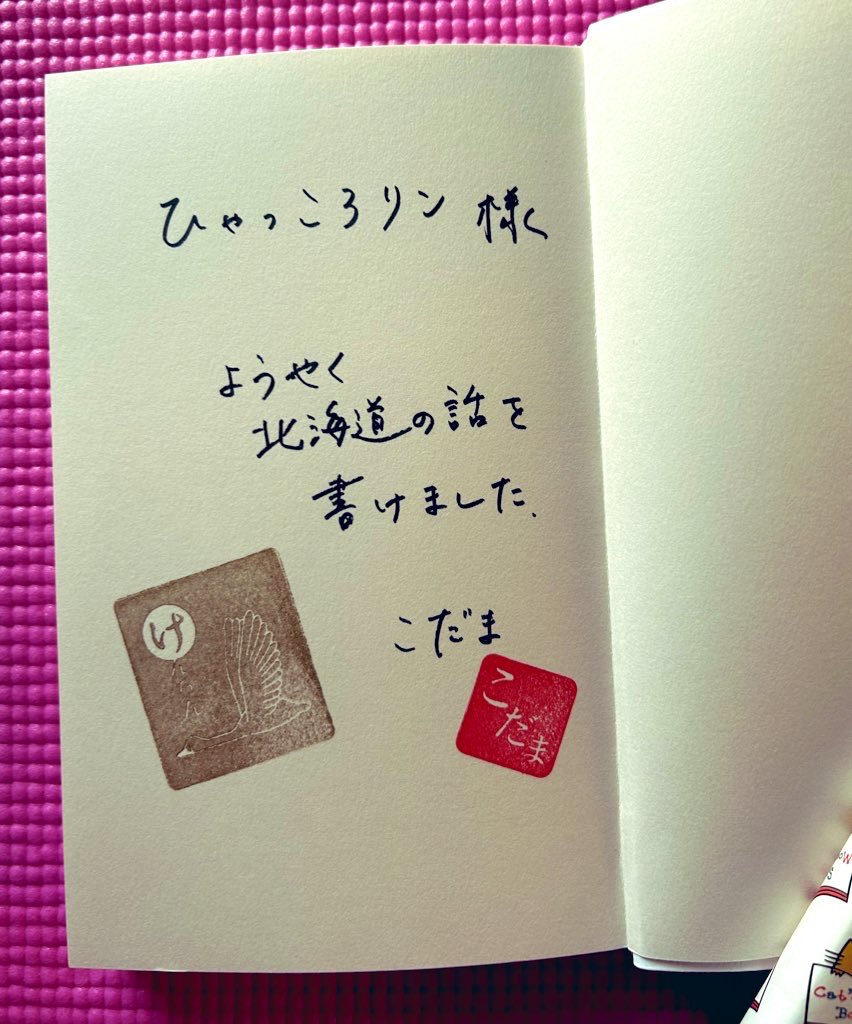 ひゃっころリン 様
ようやく
北海道の話を
書けました、
こだま
け
こだま
Cab